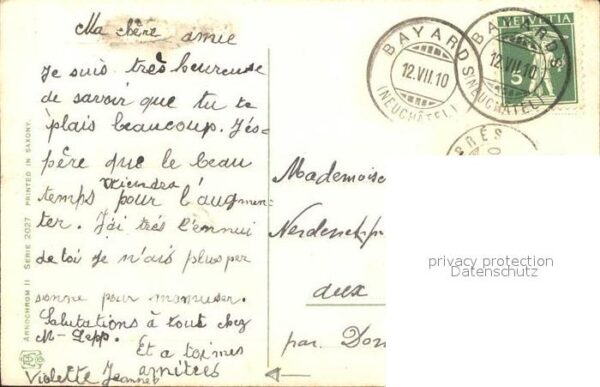 Ma chère amie
Je suis très heureuse
de savoir que tu te
plais beaucoup. J'és-
père que le beau
temps viendra pour l'augmen-
ter. J'ai très l'ennui
de toi je n'ais plus per
sonne pour mamuser.
Salutations à tout chez
M- Lepp.
Et a toi mes
amitiées
Violette Jeanne
BAYARDS
12.VII.10
(NEUCHÂTEL)
BAYARDS
12.VII.10
(NEUCHÂTEL)
HELVETIA
5
Mademoise
aux
par. Dom
privacy protection
Datenschutz
ARNOCHROM II SERIE 2027 PRINTED IN SAXONY.